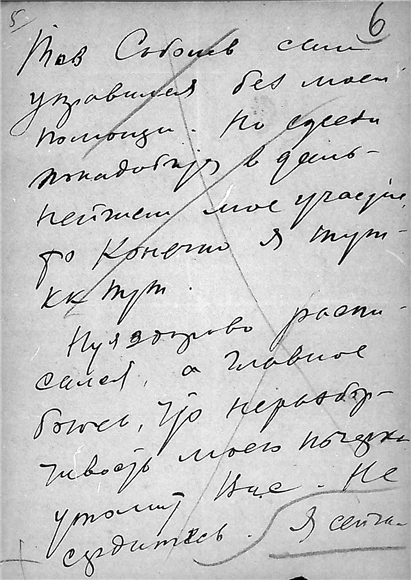 5.
6
Тов Соболев сам
управился без моей
помощи. Но если
понадобится в даль-
нейшем мое участие,
то конечно я тут
как тут.
Ну я здорово распи-
сался, а главное
боюсь, что неразбор-
чивость моего почерка
утомит Вас. Не
сердитесь. Я сейча-